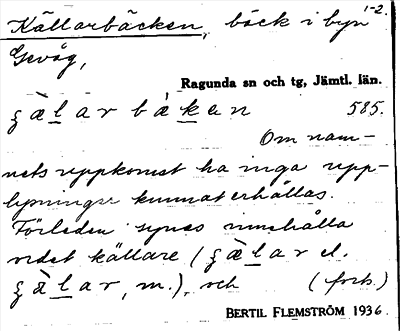 Källarbäcken, bäck i byn 1-2.
Gevåg,
Ragunda sn och tg, Jämtl. län.
585.
Om nam-
nets uppkomst ha inga upp-
lysningar kunnat erhållas.
Förleden synes innehålla
ordet källare (
m.), och (forts.)
BERTIL FLEMSTRÖM 1936.